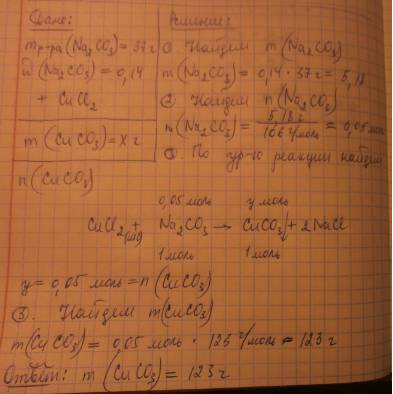 Дано:
m р-ра (Na₂CO₃) = 37 г
ω (Na₂CO₃) = 0,14
+ CuCl₂
m (CuCO₃) = x г
n (CuCO₃)
Решение:
① Найдем m (Na₂CO₃)
m (Na₂CO₃) = 0,14 · 37 г = 5,18
② Найдем n (Na₂CO₃)
n (Na₂CO₃) = 5,18 г / 106 г/моль = 0,05 моль
③ По ур-ю реакции найдем
0,05 моль y моль
CuCl₂ + Na₂CO₃ → CuCO₃↓ + 2NaCl
1 моль 1 моль
y = 0,05 моль = n (CuCO₃)
③. Найдем m (CuCO₃)
m (CuCO₃) = 0,05 моль · 123 г/моль = 123 г
Ответ: m (CuCO₃) = 123 г